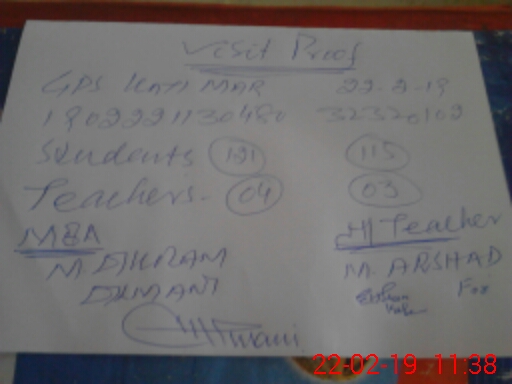 Visit Proof
GPS KATI MAR 22-2-19
1902221130480 32320102
Students 131 115
Teachers. 04 03
MEA H/Teacher
M. IKRAM M. ARSHAD
For
22-02-19 11:38